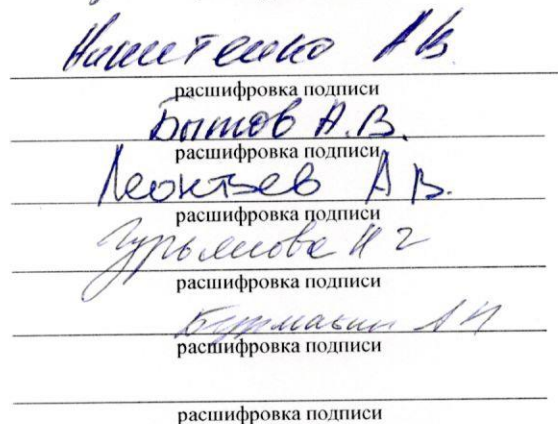 Никитенко А В.
расшифровка подписи
Бытов А.В.
расшифровка подписи
Леонтьев А В.
расшифровка подписи
Гурьянова Н Г
расшифровка подписи
Бурмакин А Н
расшифровка подписи
расшифровка подписи